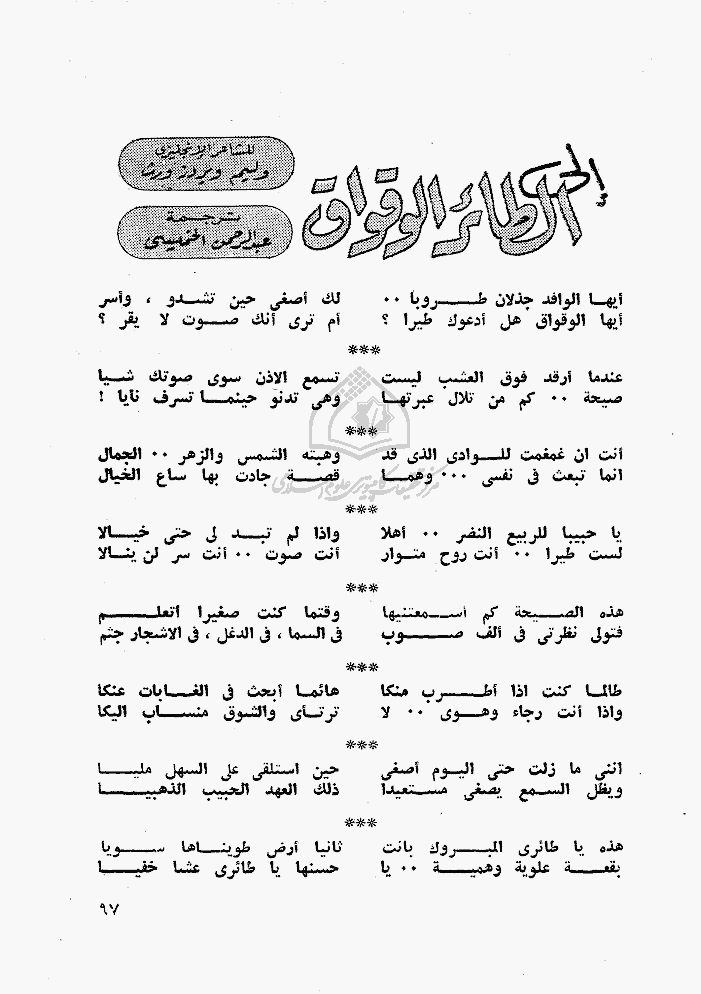 إلى الطائر الوقواق
للشاعر الإنجليزى
وليم ويردزورث
ترجمة
عبدالرحمن الخميسى
أيهـا الوافد جذلان طـــروبا ٠٠ لك أصغى حين تشـدو ، وأسر
أيها الوقواق هل أدعوك طيرا ؟ أم ترى أنك صـوت لا يقر ؟
***
عندما أرقد فوق العشب ليست تسمع الاذن سوى صوتك شـيا
صيحة ٠٠ كم من تلال عبرتهـا وهى تدنو حينمـا تسرف نايا !
***
أنت ان غمغمت للـوادى الذى قد وهبته الشمس والزهر ٠٠ الجمال
انما تبعث فى نفسى ٠٠٠ وهمـا قصـة جادت بها ساع الخيال
***
يا حبيبا للربيع النضر ٠٠ أهلا واذا لم تبـد لى حتى خيـالا
لست طيرا ٠٠ أنت روح متـوار أنت صوت ٠٠ أنت سر لن ينـالا
***
هذه الصـيحة كم أسـمعتنيها وقتما كنت صغيرا أتعلـم
فتولى نظرتى فى ألف صـوب فى السما ، فى الدغل ، فى الاشجار جثم
***
طالما كنت اذا أطـرب منكا هائمـا أبحث فى الغـابات عنكا
واذا أنت رجاء وهـوى ٠٠ لا ترتـأى والشوق منسـاب اليكا
***
اننى ما زلت حتى اليـوم أصغى حين استلقى على السهل مليـا
ويظل السـمع يصغى مسـتعيدا ذلك العهد الحبيب الذهبيـا
***
هذه يا طائرى المبـروك بانت ثانيا أرض طوينـاها سـويا
بقعـة علوية وهميـة ٠٠ يا حسنها يا طائرى عشا خفيـا
٩٧